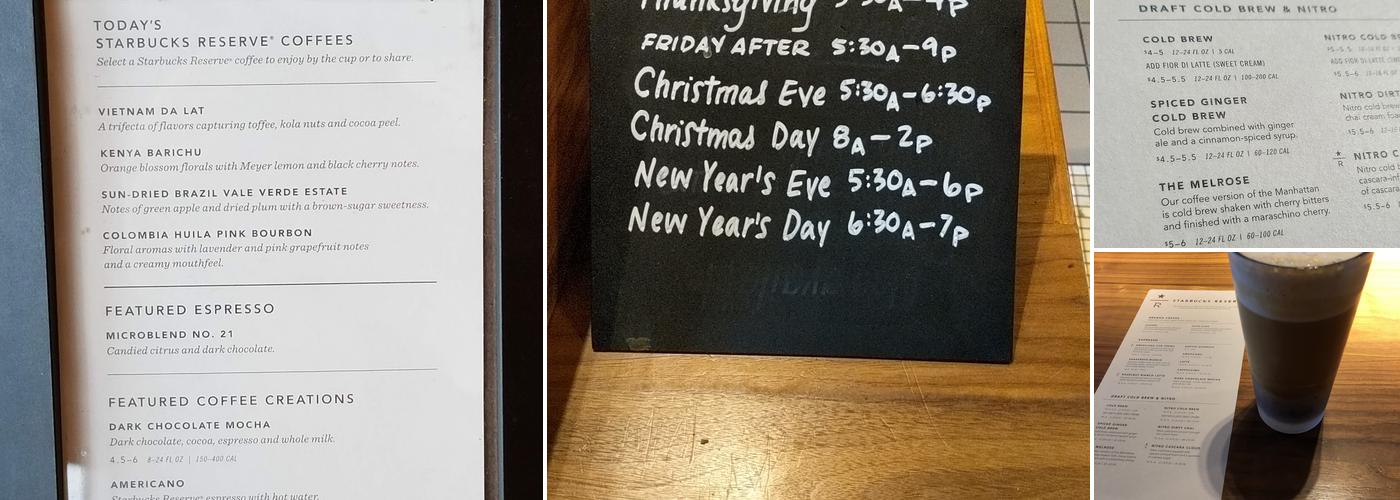 TODAY'S
STARBUCKS RESERVE® COFFEES
Select a Starbucks Reserve® coffee to enjoy by the cup or to share.
VIETNAM DA LAT
A trifecta of flavors capturing toffee, kola nuts and cocoa peel.
KENYA BARICHU
Orange blossom florals with Meyer lemon and black cherry notes.
SUN-DRIED BRAZIL VALE VERDE ESTATE
Notes of green apple and dried plum with a brown-sugar sweetness.
COLOMBIA HUILA PINK BOURBON
Floral aromas with lavender and pink grapefruit notes
and a creamy mouthfeel.
FEATURED ESPRESSO
MICROBLEND NO. 21
Candied citrus and dark chocolate.
FEATURED COFFEE CREATIONS
DARK CHOCOLATE MOCHA
Dark chocolate, cocoa, espresso and whole milk.
4.5–6 8–24 FL OZ | 150–400 CAL
AMERICANO
Starbucks Reserve® espresso with hot water.
Thanksgiving
FRIDAY AFTER 5:30A–9P
Christmas Eve 5:30A–6:30P
Christmas Day 8A–2P
New Year's Eve 5:30A–6P
New Year's Day 6:30A–7P
DRAFT COLD BREW & NITRO
COLD BREW
$4–5 12–24 FL OZ | 5 CAL
ADD FIOR DI LATTE (SWEET CREAM)
$4.5–5.5 12–24 FL OZ | 100–200 CAL
SPICED GINGER
COLD BREW
Cold brew combined with ginger
ale and a cinnamon-spiced syrup.
$4.5–5.5 12–24 FL OZ | 60–120 CAL
THE MELROSE
Our coffee version of the Manhattan
is cold brew shaken with cherry bitters
and finished with a maraschino cherry.
$5–6 12–24 FL OZ | 60–100 CAL
NITRO COLD
ADD FIOR DI LATTE
$5.5–6
NITRO
Nitro cold brew
chai cream
NITRO
R
STARBUCKS
R
ESPRESSO
DRAFT COLD BREW & NITRO
COLD BREW
NITRO COLD BREW
NITRO DIRTY CHAI
NITRO CASCARA CLOUD